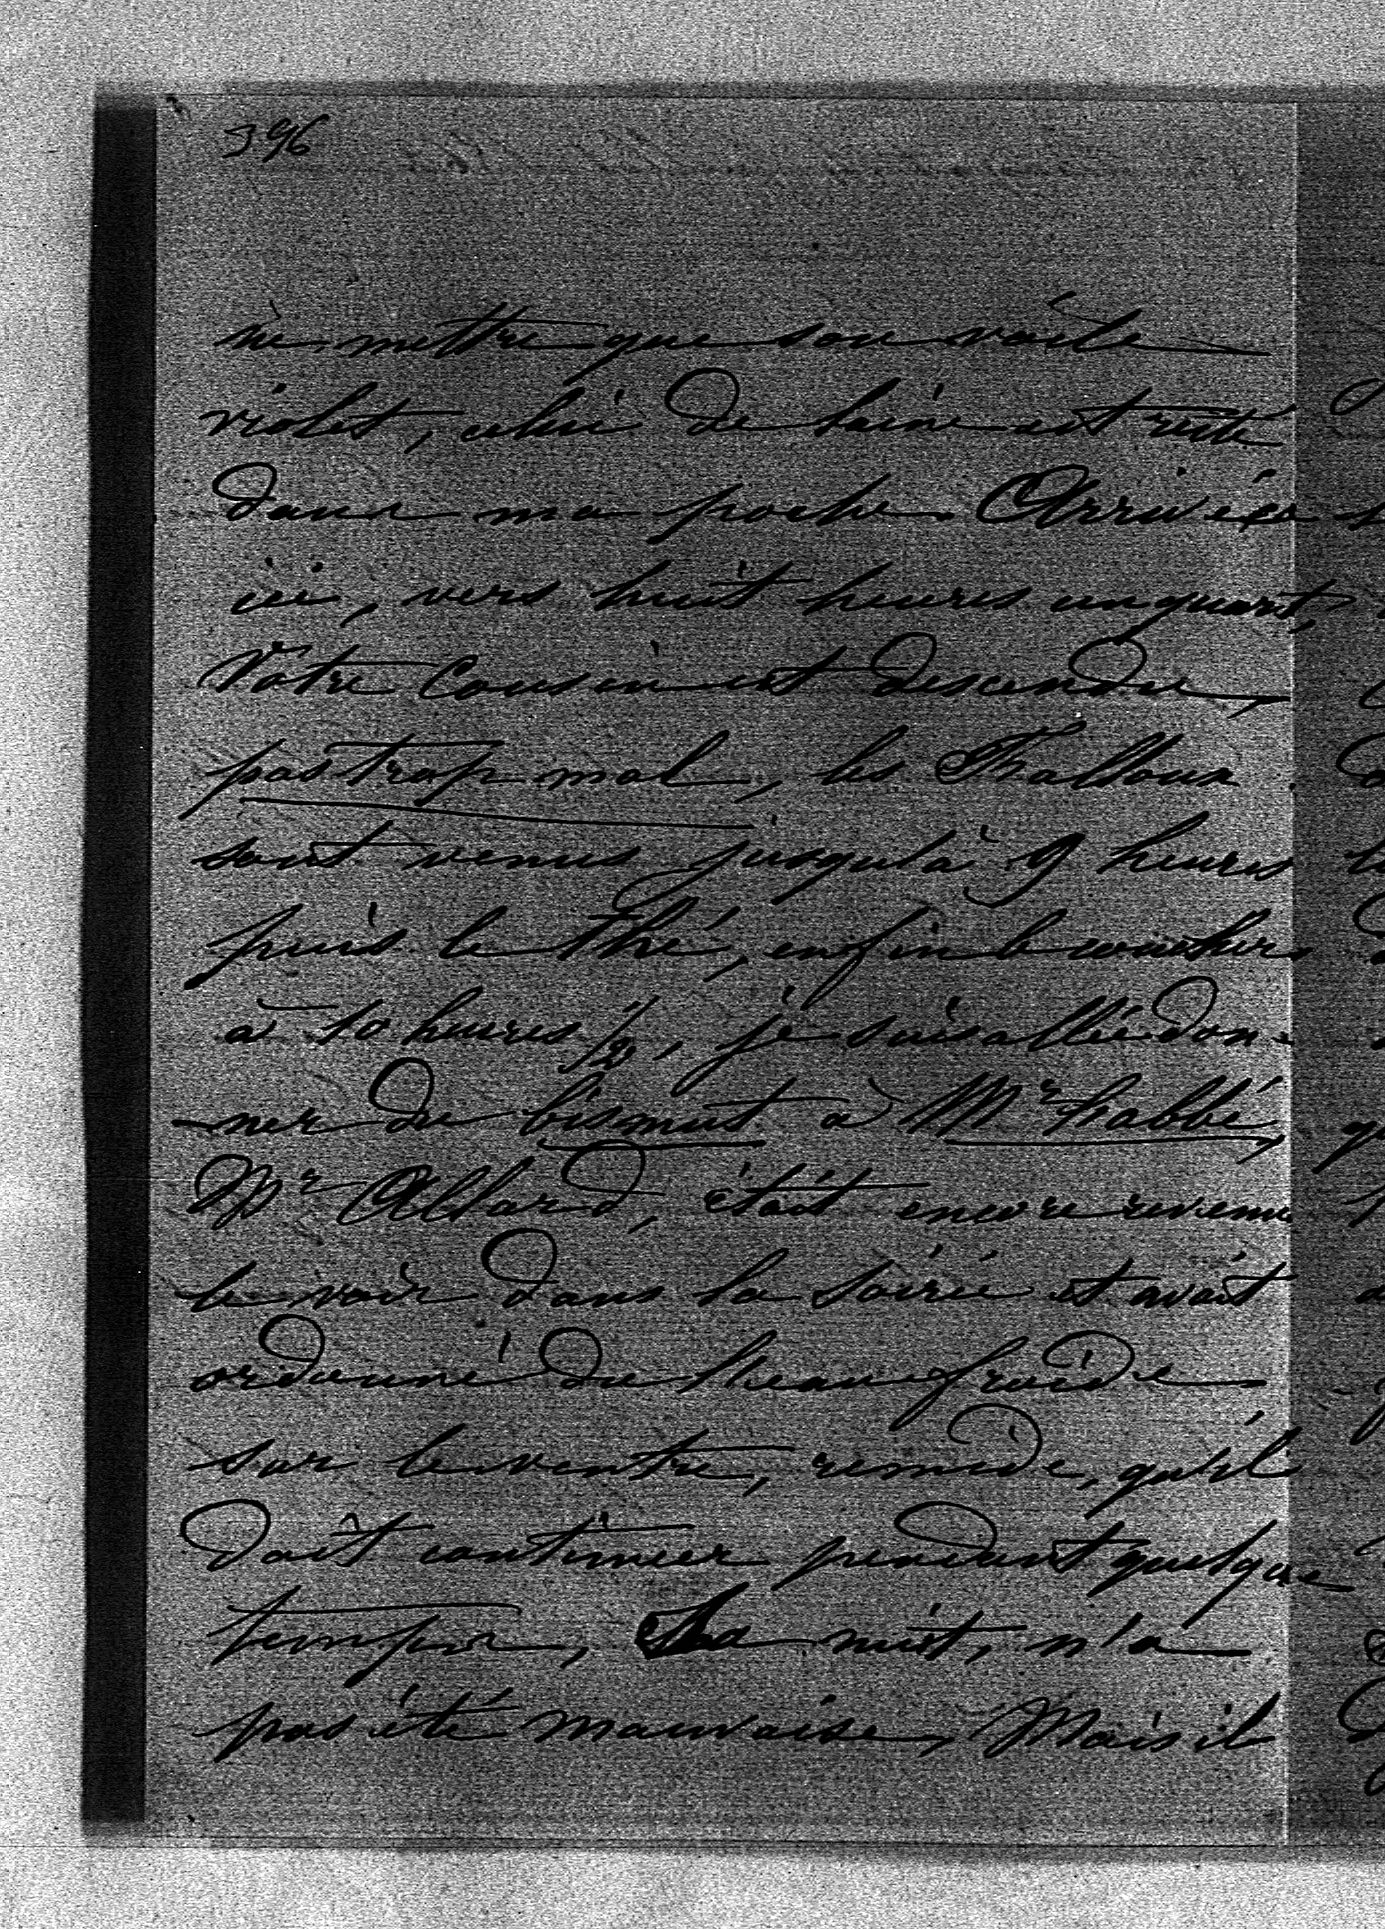 396
ne mettre que son voile
violet, celui de laine est resté
dans ma poche. Arrivées
ici, vers huit heures un quart,
Votre Cousin est descendu,
pas trop mal, les Falloux
sont venus jusqu'à 9 heures
puis le thé, enfin le coucher
à 10 heures 1/2, je suis allée don-
ner du bismut à Mr l'abbé,
Mr Allard, était encore revenu
le voir dans la soirée et avait
ordonné de l'eau froide
sur le ventre, remède, qu'il
doit continuer pendant quelque
temps, La nuit, n'a
pas été mauvaise, Mais il